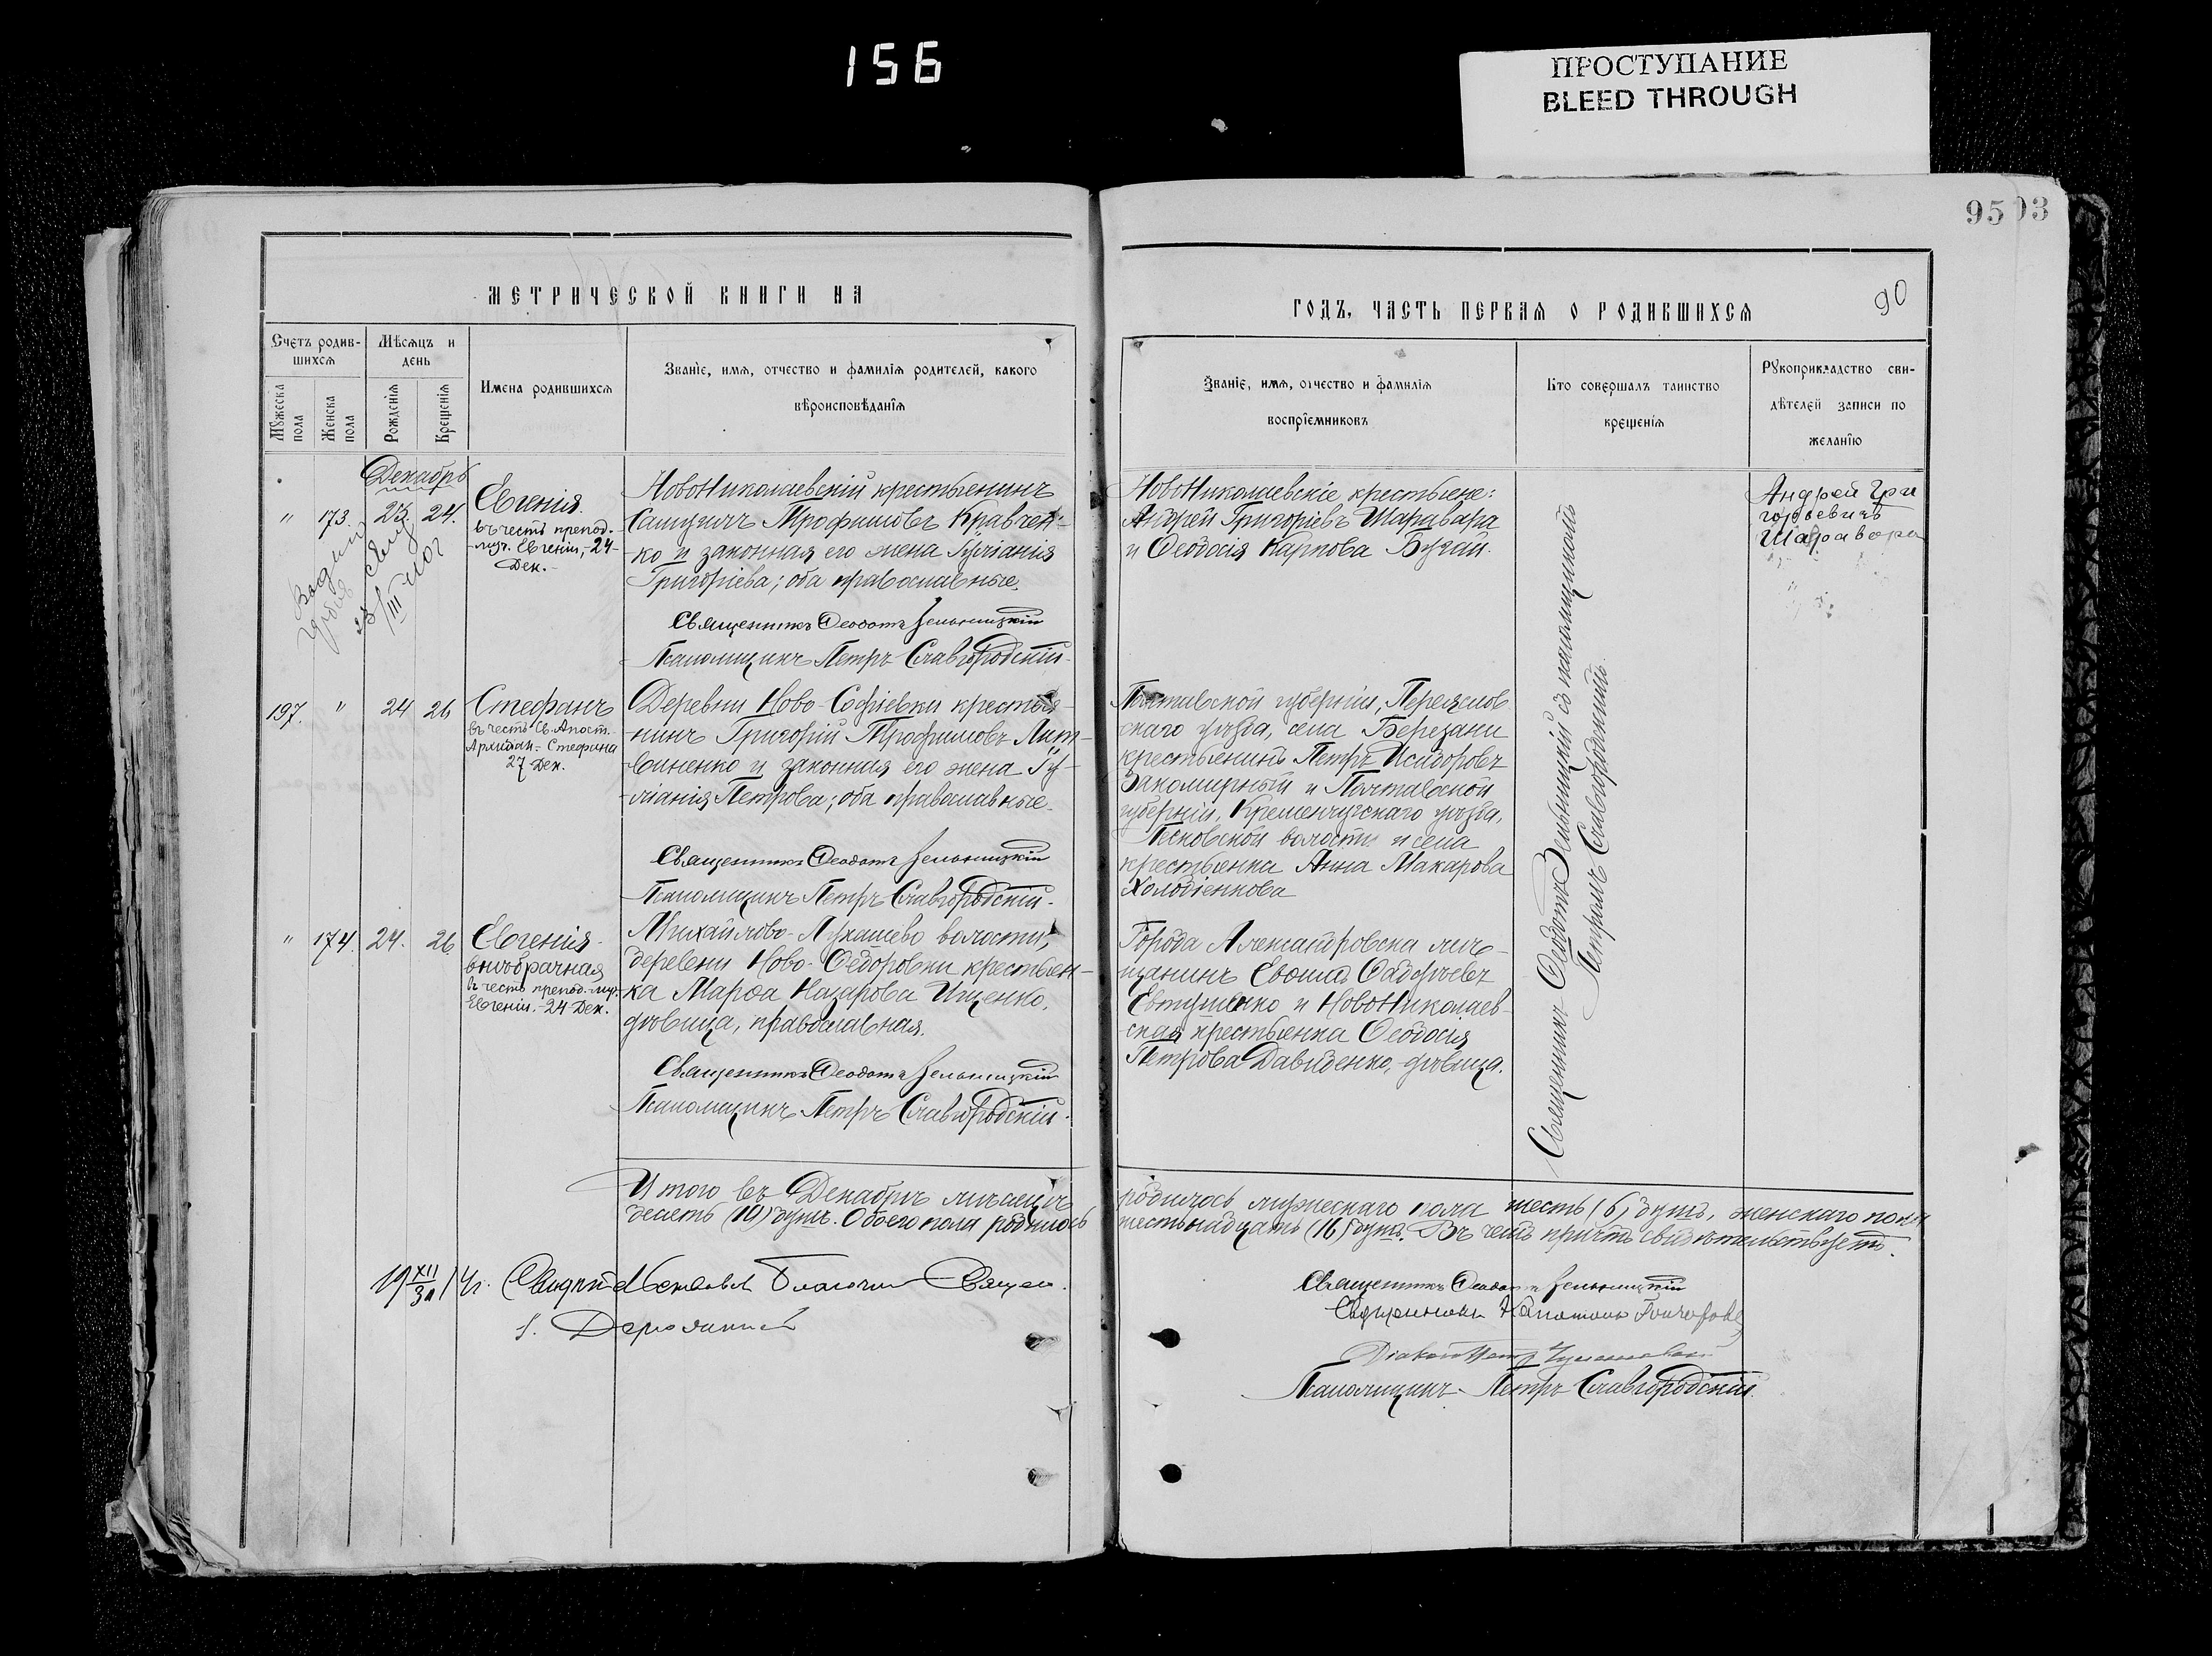 156
ПРОСТУПАНИЕ
BLEED THROUGH
95
03
90
МЕТРИЧЕСКОЙ КНИГИ НА
ГОДЪ, ЧАСТЬ ПЕРВАЯ О РОДИВШИХСЯ
Счетъ родив-
шихся
Мѣсяцъ и
день
Мꙋжеска
пола
Женска
пола
Рожденія
Крещенія
Имена родившихся
Званіе, имя, отчество и фамилія родителей, какого
вѣроисповѣданія
Званіе, имя, отчество и фамилія
воспріемниковъ
Кто совершалъ таинство
крещенія
Рꙋкоприкладство сви-
дѣтелей записи по
желанію
Декабрь
" 173. 23. 24.
Евгенія.
въ честь препод.-
-муч. Евгеніи,-24-
Дек.-
НовоНиколаевскій крестьянинъ
Трофимовъ Кравчен-
-ко и законная его жена Іуліанія
Григоріева; оба православные.
Священникъ Ѳеодотъ Зельницкій
Псаломщикъ Петръ Славгородскій.
НовоНиколаевскіе крестьяне:
Андрей Григоріевъ Шаравара
и Ѳеодосія Карпова Бугай.
Андрей Гри
горьевичъ
Шаравара
197. " 24 26
Стефанъ
въ честь Св. Апост.
Архидіак. Стефана
27 Дек.
Деревни Ново-Софіевки крестья-
-нинъ Григорій Трофимовъ Лит-
виненко и законная его жена Іу-
-ліанія Петрова; оба православные.
Священникъ Ѳеодотъ Зельницкій
Псаломщикъ Петръ Славгородскій.
Полтавской губерніи, Переяслов
скаго уѣзда, села Березани
крестьянинъ Петръ Исидоровъ
Закомирный и Полтавской
губерніи, Кременчугскаго уѣзда,
Песковской волости и села
крестьянка Анна Макарова
Холодіенкова
" 174. 24. 26.
Евгенія-
внѣбрачная
въ честь препод.-муч.
Евгеніи.-24 Дек.
Михайлово-Лукашево волости,
деревени Ново-Ѳедоровки крестьян-
ка Марѳа Назарова Ищенко,
дѣвица, православная.
Священникъ Ѳеодотъ Зельницкій
Псаломщикъ Петръ Славгородскій.
Города Александровска мѣ-
щанинъ
Евтушенко и НовоНиколаев-
-ская крестьянка Ѳеодосія
Петрова Давиденко,-дѣвица.
Священникъ Ѳеодотъ Зельницкій съ псаломщикомъ
Петромъ Славгородскимъ.
Итого въ Декабрѣ мѣсяцѣ
родилось мужескаго пола шесть (6) душъ, женскаго пола
десять (10) душъ. Обоего пола родилось
шестьнадцать (16) душъ. Въ чемъ причтъ свидѣтельствуетъ.
Благочин Священ.
Священникъ Ѳеодотъ Зельницкій
Священникъ Гончаровъ
Діаконъ Петръ
Псаломщикъ Петръ Славгородскій.